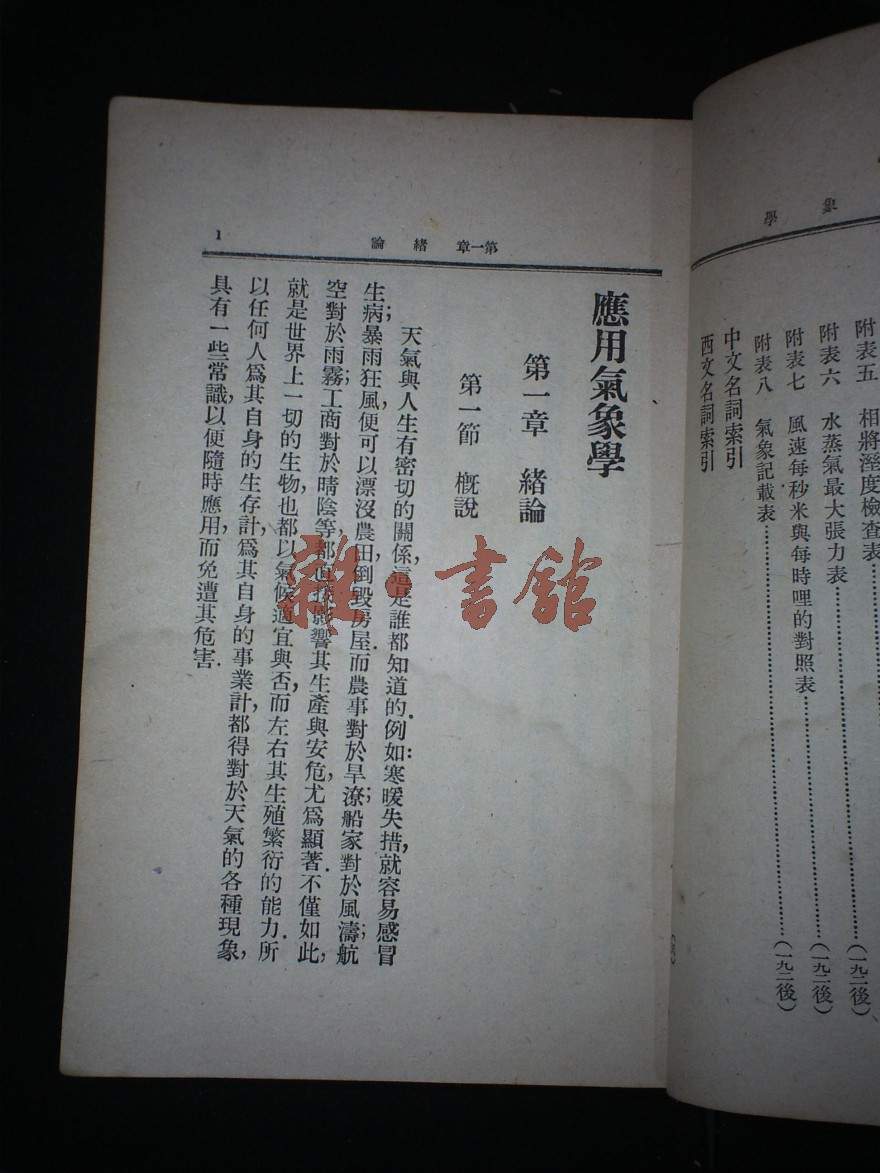 象 學
附表五 相將溼度檢查表……(一九二後)
附表六 水蒸氣最大張力表……(一九二後)
附表七 風速每秒米與每時哩的對照表……(一九二後)
附表八 氣象記載表……(一九二後)
中文名詞索引
西文名詞索引
第一章 緒論 1
應用氣象學
第一章 緒論
第一節 概說
天氣與人生有密切的關係,這是誰都知道的.例如:寒暖失措,就容易感冒
生病;暴雨狂風,便可以漂沒農田,倒毀房屋.而農事對於旱潦;船家對於風濤;航
空對於雨霧;工商對於晴陰等,都直接影響其生產與安危,尤爲顯著.不僅如此,
就是世界上一切的生物,也都以氣候適宜與否,而左右其生殖繁衍的能力.所
以任何人爲其自身的生存計,爲其自身的事業計,都得對於天氣的各種現象,
具有一些常識,以便隨時應用,而免遭其危害.
雜·書館